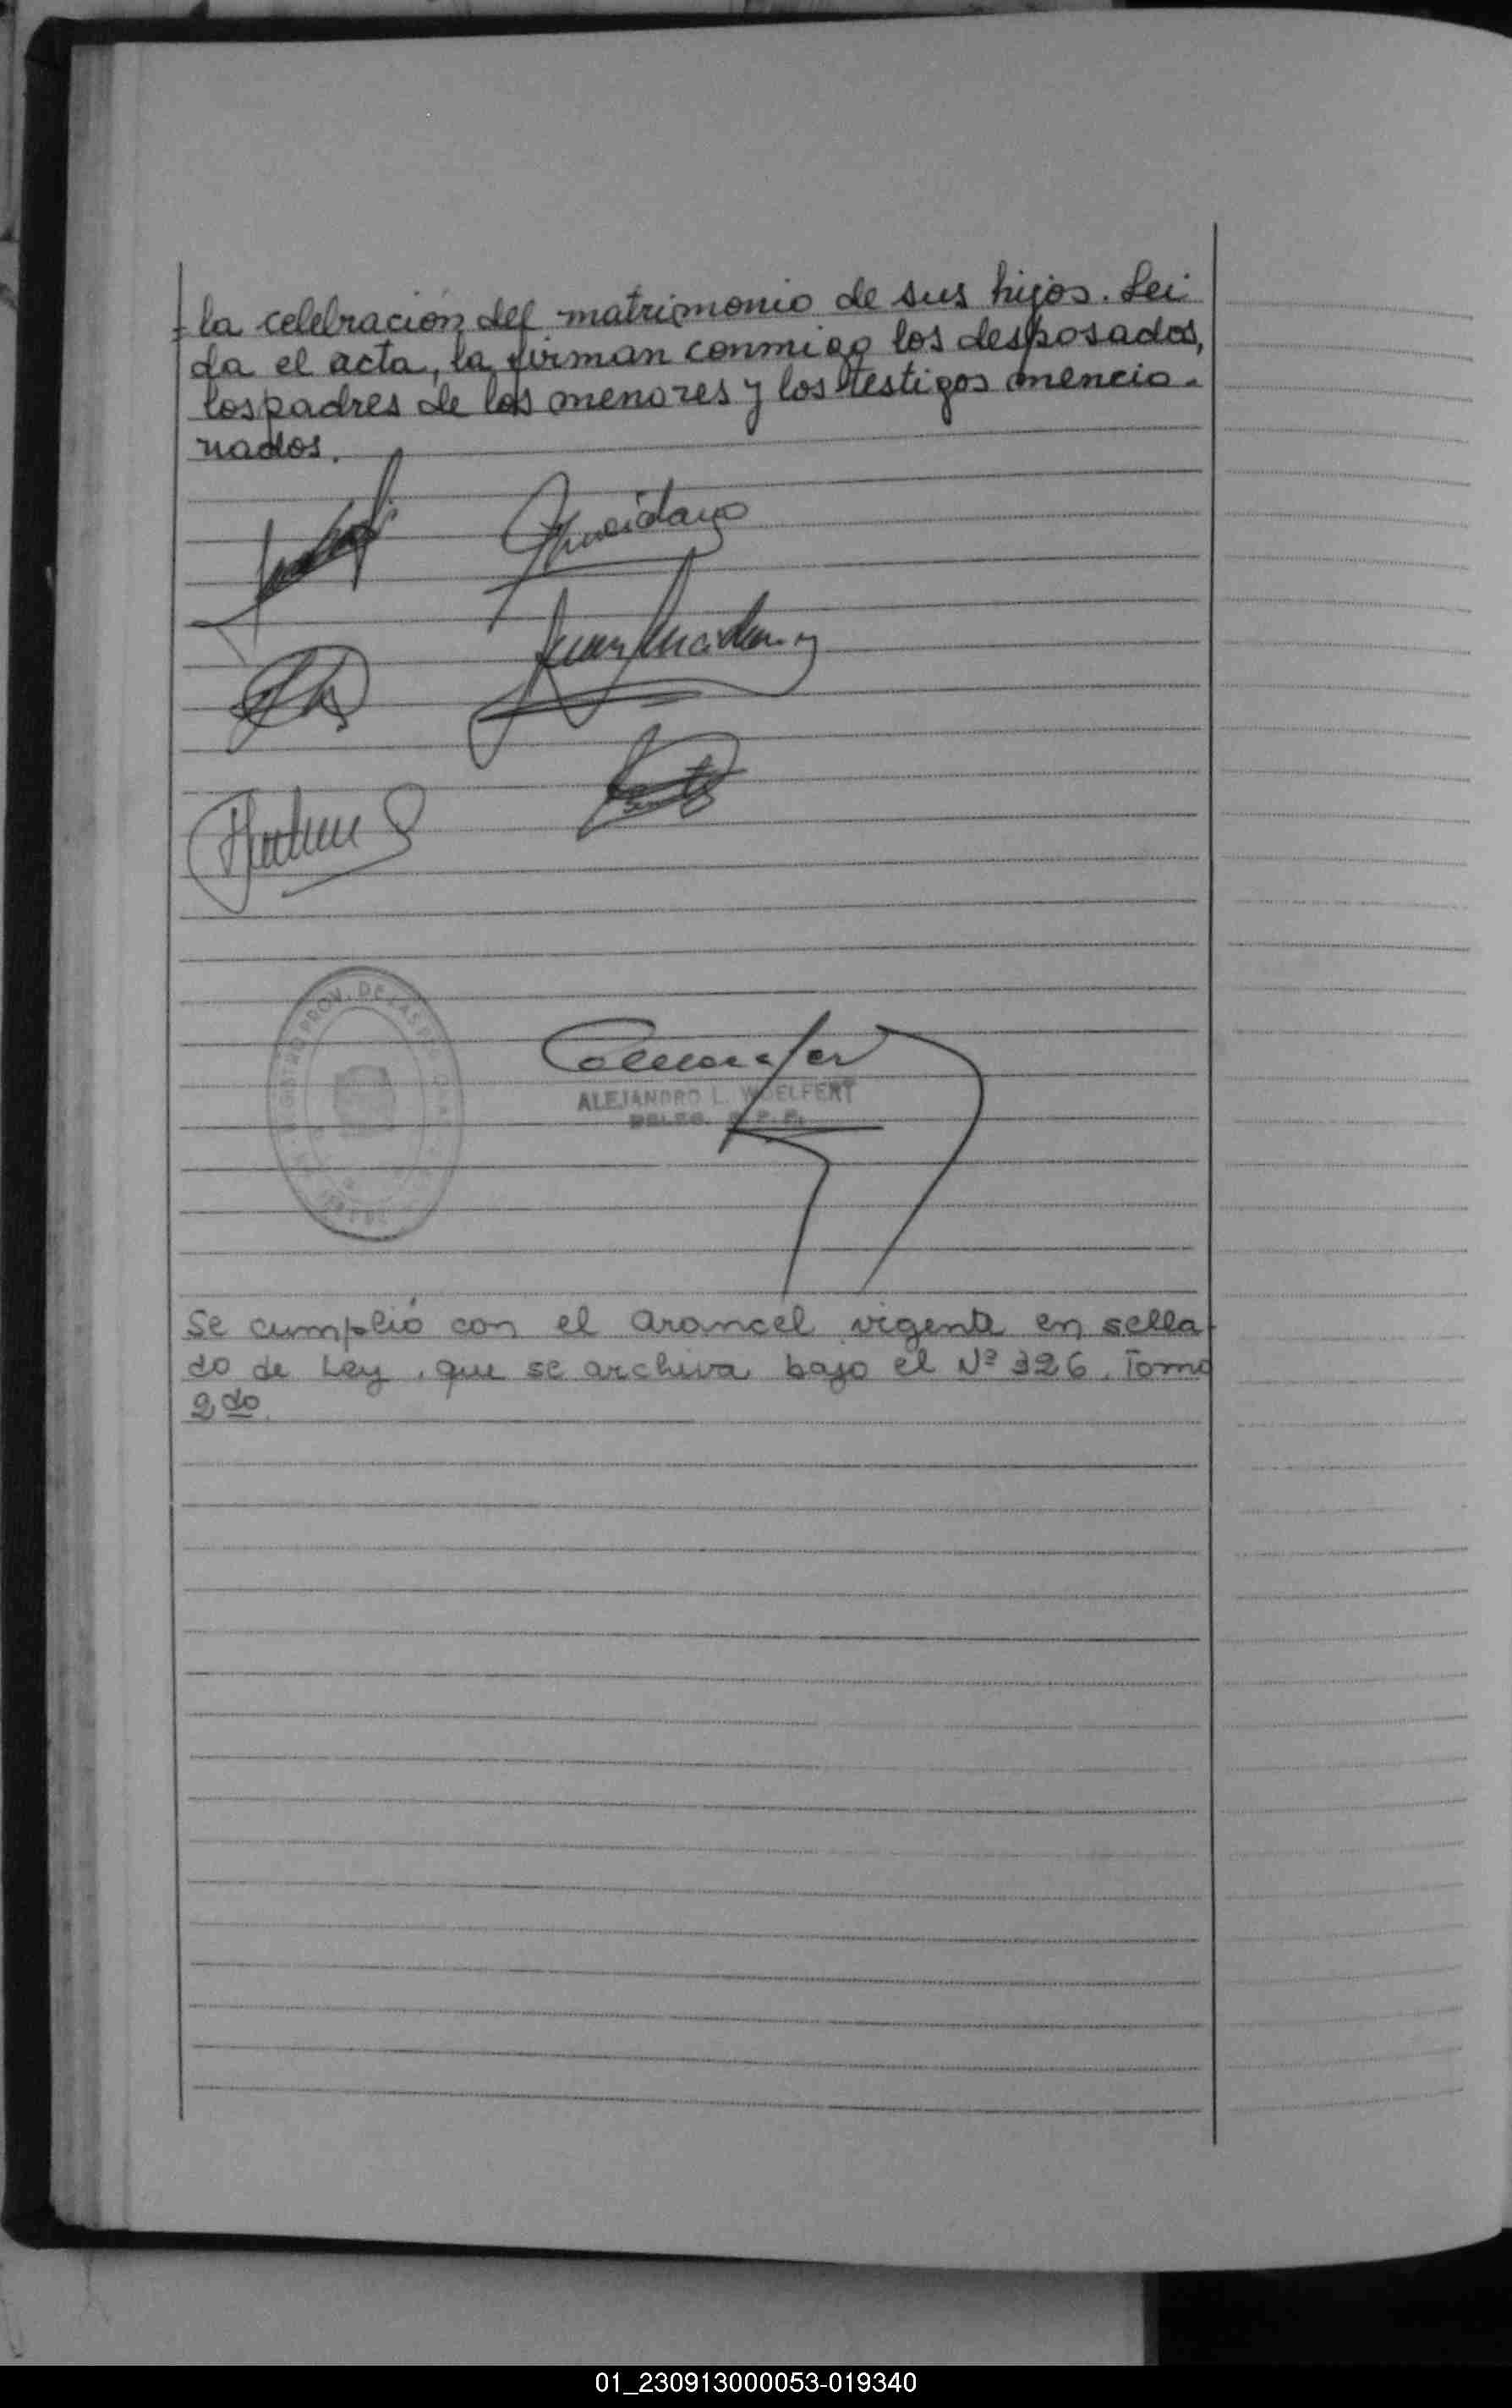 la celebración del matrimonio de sus hijos. Lei
da el acta, la firman conmigo los desposados,
los padres de los menores y los testigos mencio-
nados.
PROV. DE LAS
ALEJANDRO L. WOELFERT
DELEG.
Se cumplió con el arancel vigente en sella
do de Ley, que se archiva bajo el Nº 326, Tomo
2do.
01_230913000053-019340